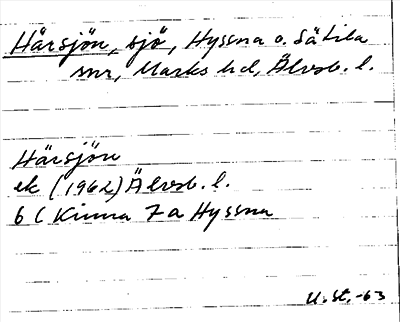 Härsjön, sjö, Hyssna o. Sätila
snr, Marks hd, Älvsb. l.
Härsjön
ek (1962) Älvsb. l.
6 C Kinna 7 a Hyssna
U. St. -63